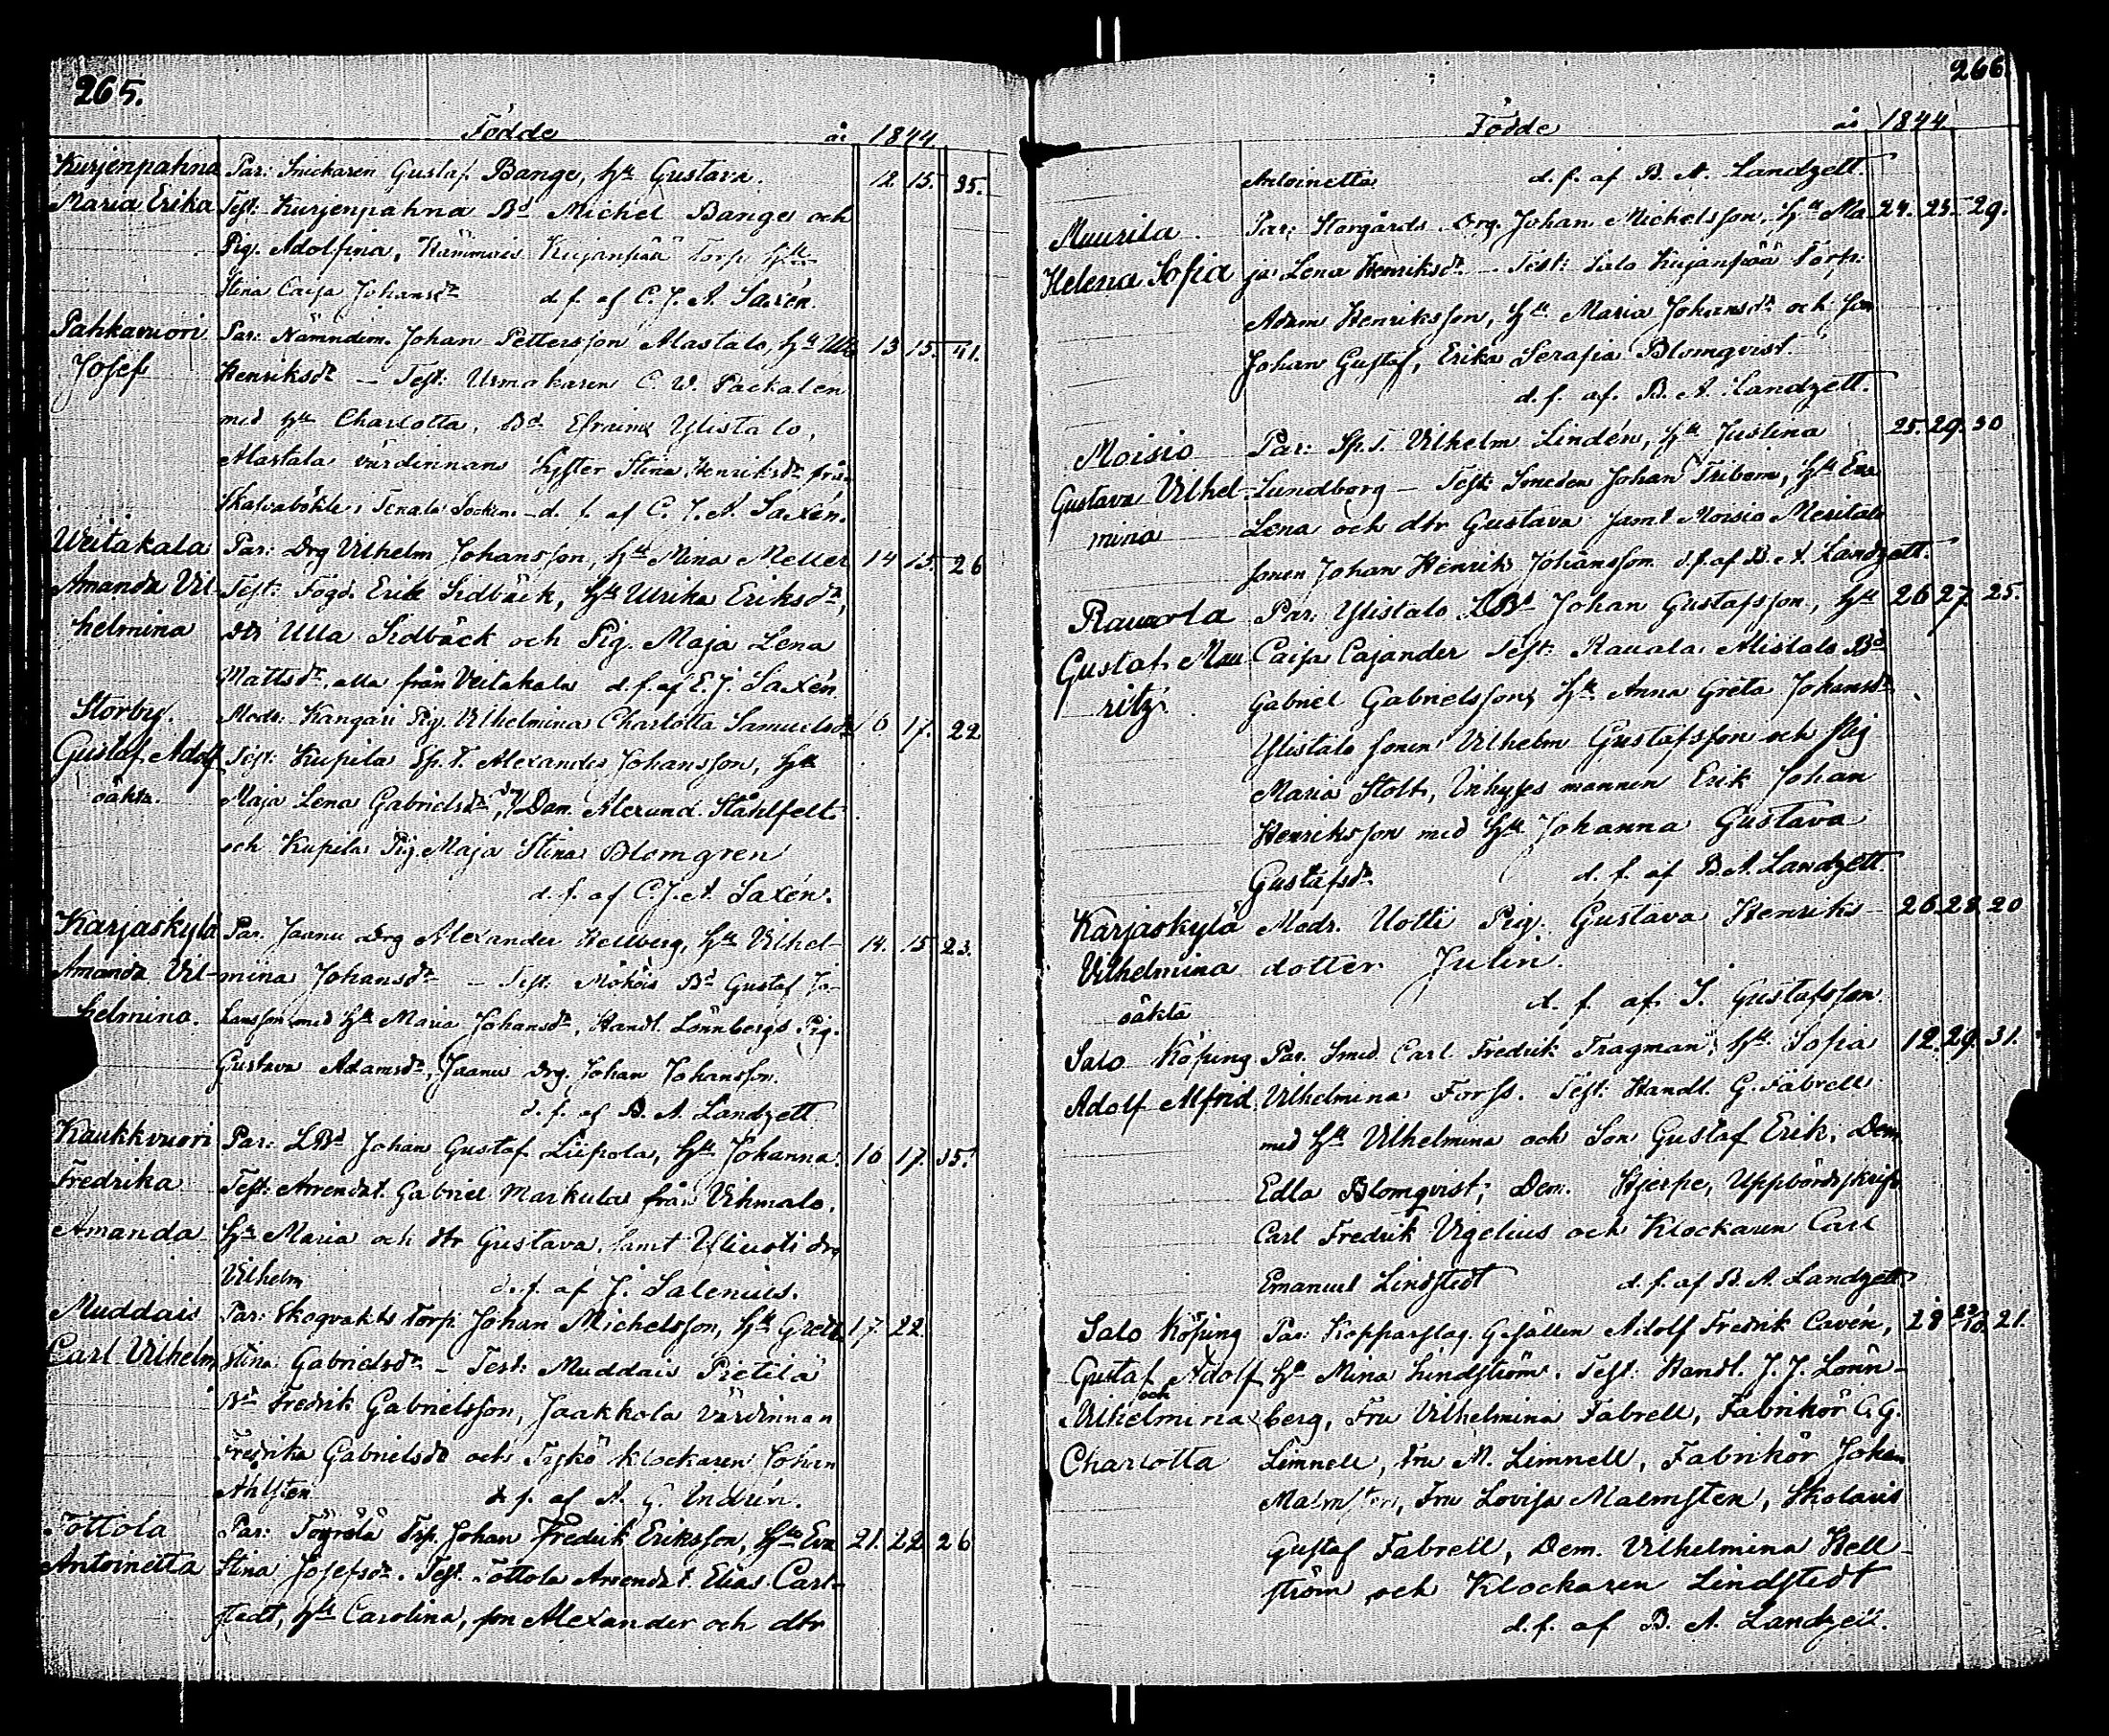 265.
Födde år 1844
Kurjenpahna Par: Snickaren Gustaf Bange, h:u Gustava. 12 15. 35.
Maria Erika Test: Kurjenpahna Bd Michel Bange och
Pig. Adolfina, Kujanpää Torp. h:u
Stina Caisa Johansdr d. f. af C. J. A. Saxén.
Pahkavuori Par: Nämndem. Johan Pettersson Alastalo, h:u Ulla 13 15. 41.
Josef Henriksdr – Test: Urmakaren C. W. Packalén
med h:u Charlotta, Bd Efraim Ylistalo,
Alastala värdinnans Syster Stina Henriksdr från
Skalvaböhle i Tenala Socken. – d. f. af C. J. A. Saxén.
Veitakala Par: Drg Vilhelm Johansson, h:u Mina Meller 14 15. 26
Amanda Vil- Test: Fogd. Erik Sidbäck, h:u Ulrika Eriksdr,
helmina dtr Ulla Sidbäck och Pig. Maja Lena
Mattsdr, alla från Veitakala d. f. af C. J. Saxén
Storby. Modr: Kangari Pig. Vilhelmina Charlotta Samuelsdr 6 17. 22
Gustaf Adolf Test: Kupila Sp. T. Alexander Johansson, h:u
oäkta. Maja Lena Gabrielsdr, Dem. Alexand. Ståhlfelt
och Kupila Pig. Maja Stina Blomgren
d. f. af C. J. A. Saxén.
Karjaskylä Par. Jaanu Drg Alexander Hellberg, h:u Vilhel- 14. 15 23.
Amanda Vil- mina Johansdr – Test: Mököis Bd Gustaf Jo-
helmina. hansson med h:u Maria Johansdr, Handl. Lönnbergs Pig.
Gustava Adamsdr, Jaanu Drg. Johan Johansson.
d. f. af B. A. Landzett
Kaukkvuori Par: LBd Johan Gustaf Liipola, h:u Johanna. 16 17. 35.
Fredrika Test: Arrendat. Gabriel Markula från Vihmalo,
Amanda h:u Maria och dtr Gustava, samt Yliuoti drg
Vilhelm d. f. af J. Salenius.
Muddais Par: Skogvakts Torp. Johan Michelsson, h:u Greta 17. 22.
Carl Vilhelm Stina Gabrielsdr – Test: Muddais Pietilä
Bd Fredrik Gabrielsson, Jaakkola Värdinnan
Fredrika Gabrielsdr och Tykö Klockaren Johan
Ahlsten d. f. af A. G. Indrén.
Tottola Par: Töyrelä Trp. Johan Fredrik Eriksson, h:u Eva 21. 22 26
Antoinetta Stina Josefsdr. Test. Tottola Arrendat. Elias Carl-
stedt, h:u Carolina, son Alexander och dtr
266
Födde år 1844
Antoinetta d. f. af B. A. Landzett.
Muurila Par: Storgårds Drg. Johan Michelsson, h:u Ma- 24. 25. 29.
Helena Sofia ja Lena Henriksdr – Test: Salo Kujanpää Torp.
Adam Henriksson, h:u Maria Johansdr och son
Johan Gustaf, Erika Serafia Blomqvist.
d. f. af. B. A. Landzett.
Moisio Par: Sp. T. Vilhelm Lindén, h:u Justina 25. 29. 30
Gustava Vilhel- Lundborg – Test: Smeden Johan Friborn, h:u Eva
mina Lena och dtr Gustava samt Moisio Meritalo
sonen Johan Henrik Johansson d. f. af B. A. Landzett.
Rauvola Par: Ylistalo LBd Johan Gustafsson, h:u 26 27. 25.
Gustaf Mau- Caisa Cajander Test: Rauvola Alistalo Bd
ritz. Gabriel Gabrielsson, h:u Anna Greta Johansdr
Ylistalo sonen Vilhelm Gustafsson och Pig
Maria Stolt, Inhyses mannen Erik Johan
Henriksson med h:u Johanna Gustava
Gustafsdr. d. f. af B. A. Landzett.
Karjaskylä Modr. Uotti Pig. Gustava Henriks- 26 28 20
Vilhelmina dotter Julin.
oäkta d. f. af. I. Gustafsson.
Salo Köping Par. Smed. Carl Fredrik Tragman, h:u Sofia 12. 29. 31.
Adolf Alfrid Vilhelmina Forss. Test: Handl. G. Fabrell
med h:u Vilhelmina och Son Gustaf Erik, Dem
Edla Blomqvist, Dem. Hjerpe, Uppbördsskrif.
Carl Fredrik Vigelius och Klockaren Carl
Emanuel Lindstedt d. f. af B. A. Landzett
Salo Köping Par: Kopparslag. Gesällen Adolf Fredrik Cavén, 28 10. 21.
Gustaf Adolf h:u Mina Lindström. Test: Handl. J. J. Lönn-
och
Vilhelmina berg, Fru Vilhelmina Fabrell, Fabrikör C. G.
Charlotta Limnell, Fru M. Limnell, Fabrikör Johan
Malmsten, Fru Lovisa Malmsten, Skolaris
Gustaf Fabrell, Dem. Vilhelmina Hell-
ström och Klockaren Lindstedt
d. f. af B. A. Landzett.